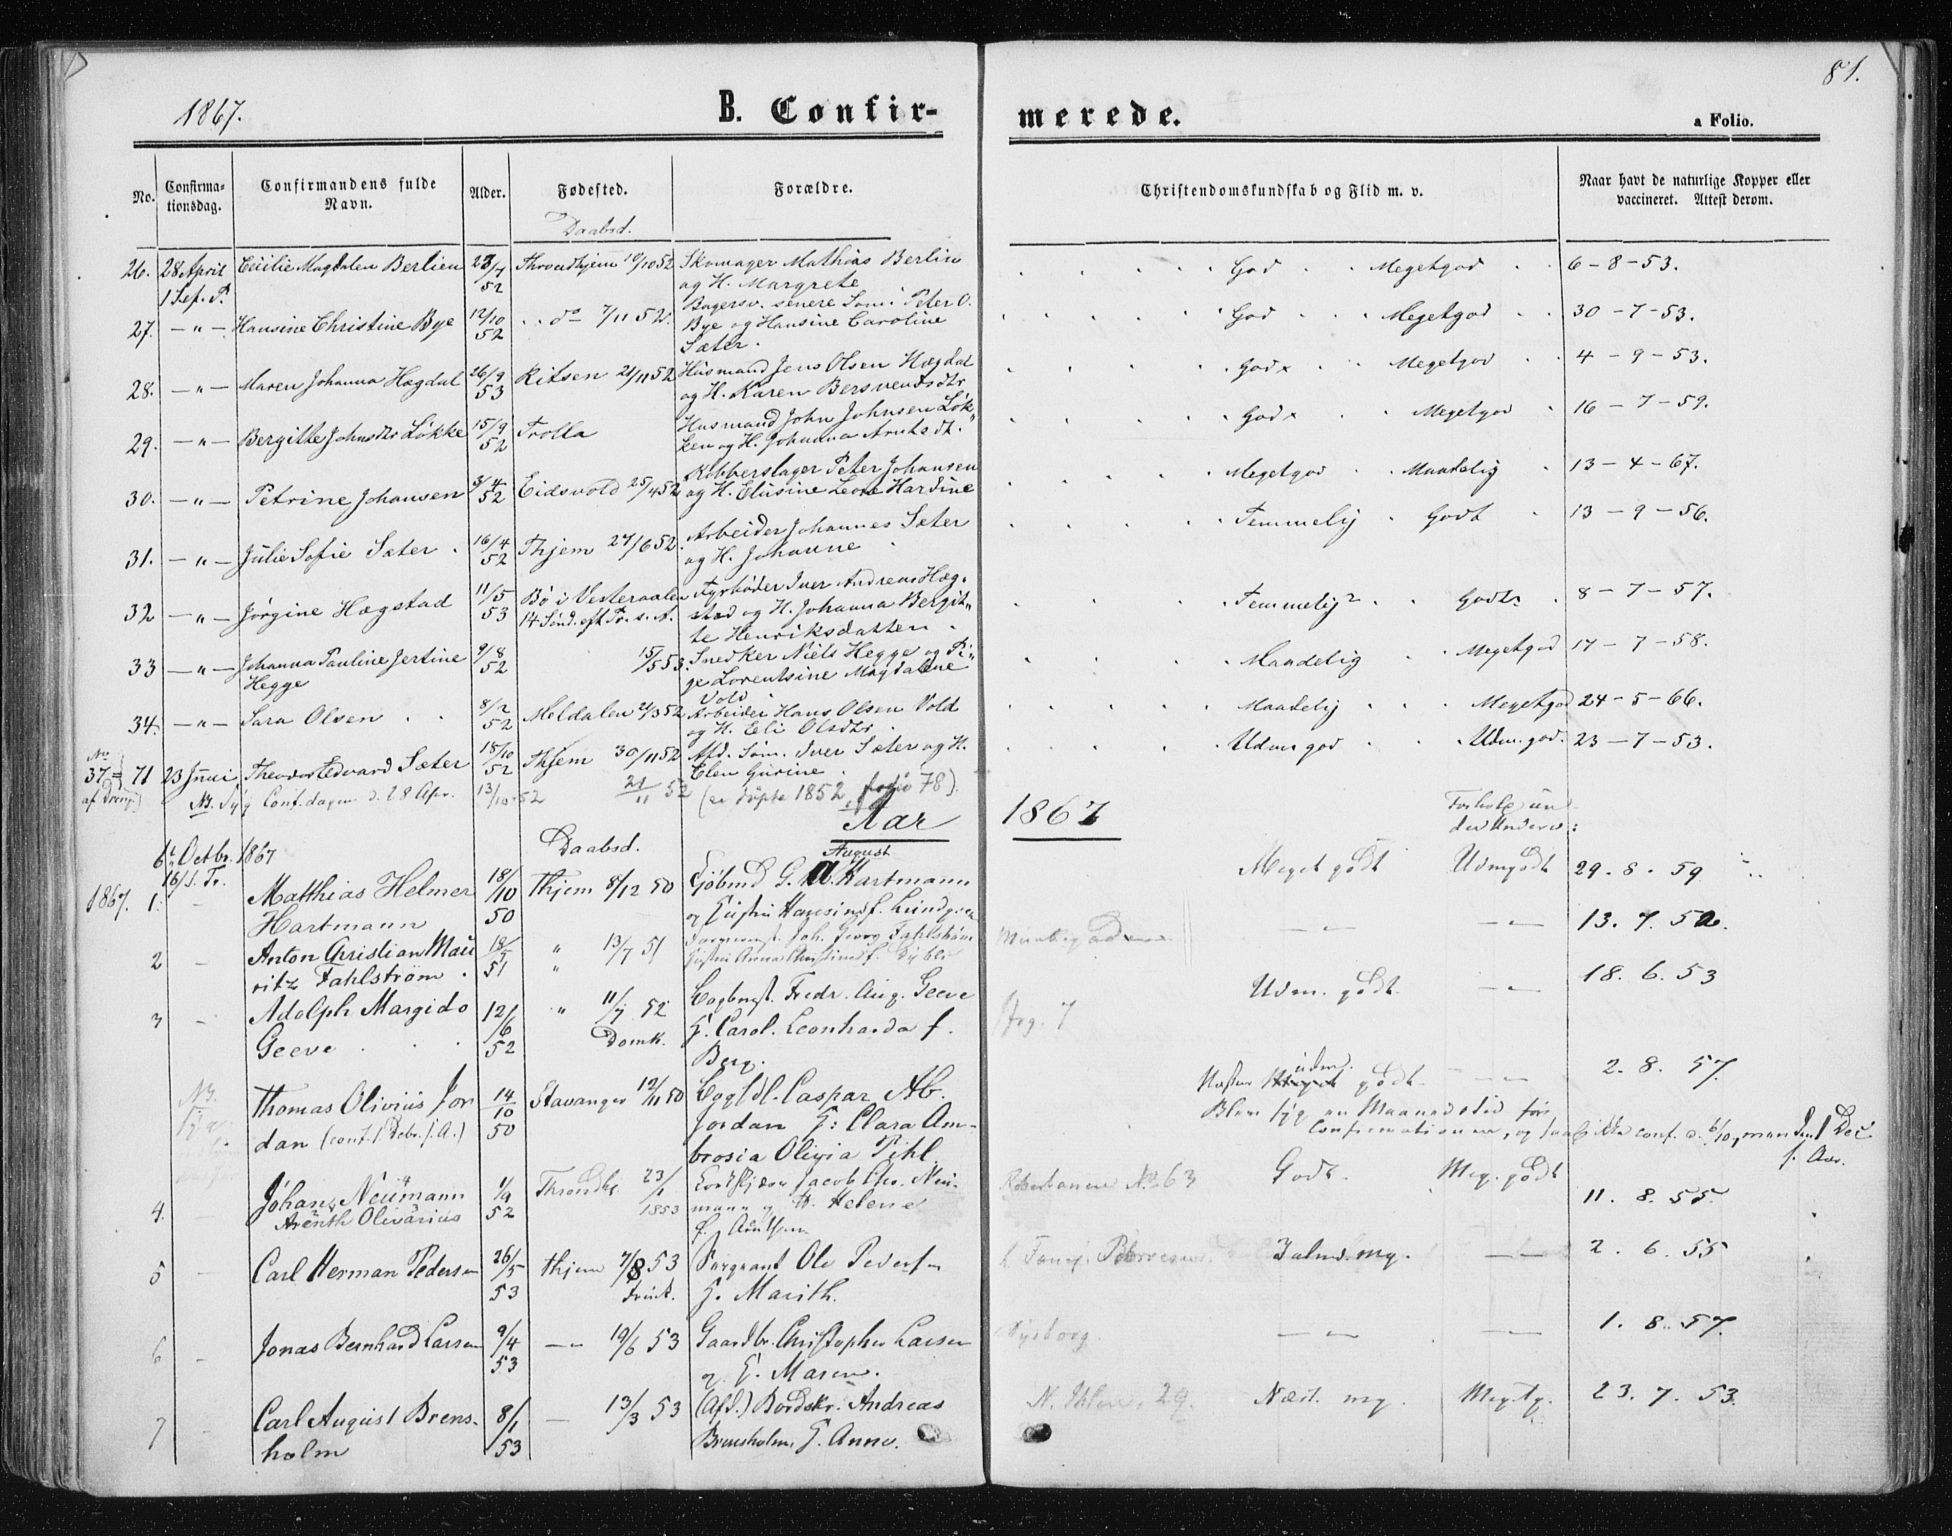 1867.
B. Confir-
merede.
81.
a Folio.
No.
Confirma-
tionsdag.
Confirmandens fulde
Navn.
Alder.
Fødested.
Daabsd.
Forældre.
Christendomskundskab og Flid m. v.
Naar havt de naturlige Kopper eller
vaccineret. Attest derom.
26. 28 April Cecilie Magdalen Berlien 23/7 Throndhjem 10/10 52 Skomager Mathias Berlin God Megetgod 6-8-53.
1 Sef. P. 52 og H. Margrete
27. -"- Hansine Christine Bye 12/10 do 7/11 52. Bagersv. senere Søm. Peter O. God Megetgod 30-7-53.
52 Bye og Hansine Caroline
Sæter.
28. -"- Maren Johanna Hægdal 26/9 Ritsen 21/11 52 Husmand Jens Olsen Hægdal God Megetgod 4-9-53.
53 og H. Karen Bersvendsdtr
29. -"- Bergitte Johnsdtr Løkke 15/9 Trolla Husmand John Johnsen Løk" God Megetgod 16-7-59.
52 ken og H. Johanna Arntsdt.
30. -"- Petrine Johansen 3/4 Eidsvold 25/4 52 Kobberslager Peter Johansen Megetgod Maadelig 13-4-67.
52 og H. Elusine Leone Hardine
31. -"- Julie Sofie Sæter. 16/4 Thjem 27/6 52. Arbeider Johannes Sæter Temmelig Godt 13-9-56.
52 og H. Johanne
32 -"- Jørgine Hægstad 11/5 Bø i Vesteraalen Fyrbøder Iver Andreas Hæg- Temmelig Godt 8-7-57.
53 14 Sønd. eft Tr. s. A. stad og H. Johanna Bergit"
te Henriksdatten.
33 -"- Johanna Pauline Jertine 9/8 15/5 53. Snedker Niels Hegge og Pi" Maadelig Megetgod 17-7-58.
Hegge 52 ge Lorentsine Magdalene
Vold
34. -"- Sara Olsen 8/2 Meldalen 21/3 52 Arbeider Hans Olsen Vold Maadelig Megetgod 24-5-66.
52 og H. Eli Olsdtr.
No
37 = 71 23 Juni Theodor Edvard Sæter 18/10 Thjem 30/11 52 Afd. Søm. Iver Sæter og H. Udm god Udm. god. 23-7-53.
af Drenge) 52 Elen Gurine
NB. Syg Conf. dagen d. 28 Apr. 13/10 52 21/11 52 (se døpte 1852 folio 78)
Aar 1867
6 Octbr. 1867 Daabsd. August
16/S. Tr.
1867. 1. Matthias Helmer 18/10 Thjem 8/12 50 G. A. Hartmann Meget godt Udmgodt 29. 8. 59
Hartmann 50
2 Anton Christian Mau 13/7 51 Joh. Georg Fahlstrøm 13. 7. 52.
ritz Fahlström. 51
3 Adolph Margido 12/6 " 11/7 52 Fredr. Aug. Geeve Udm. godt. 18. 6. 53
Geeve 52 Domk. Carol. Leonharda f.
Berg.
NB. Thomas Olivius Jor 14/10 Stavanger 12/11 50 Caspar Ab. godt. 2. 8. 57.
dan (conf. 1 Decbr. s. A.) 50 Jordan H: Clara Am-
brosia Olivia Pihl.
Blev syg en Maanedstid før
Confirmationen, og conf. d. 6/10, men den 1 Dec
s. Aar.
4. Johan Neumann 1/9 Trondh. 23/1 Jacob Chr. Neu- No 63 Godt. Meg. godt 11. 8. 55.
Arenth Olivarius 52 1853 mann og H. Helene
5 Carl Herman Pedersen 26/5 Thjem 7/8 53 Sergeant Ole Pedersen 2. 6. 55
53 H. Marith.
6 Jonas Bernhard Larsen 9/4 19/6 53 Gaardbr. Christopher Larsen 1. 8. 57.
53 og H. Maren.
7 Carl August Brens- 8/1 13/3 53 (Afd.) Bordskr: Andreas N. Ihlen, 29. Næst. mg. Meg. tg. 23. 7. 53.
holm 53 Brensholm, H. Anne.